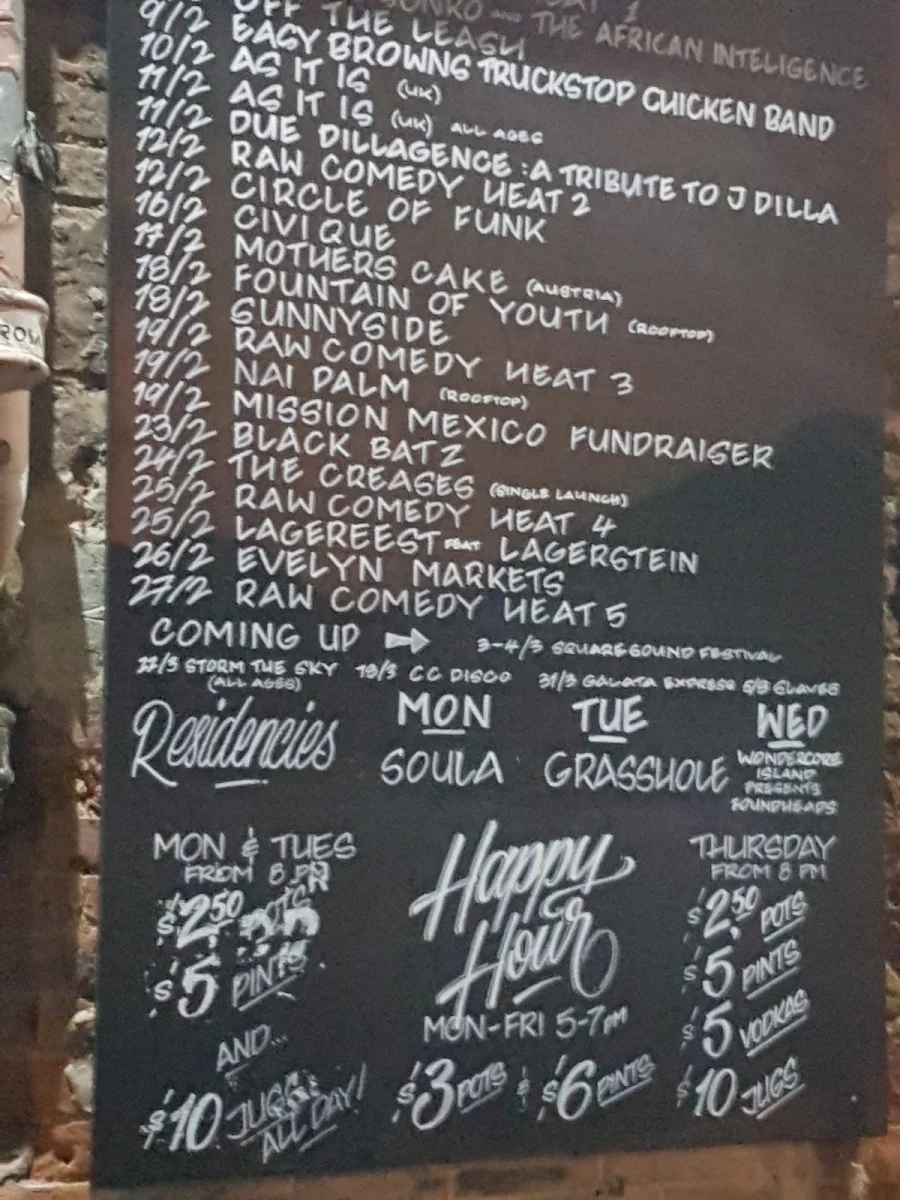 HEAT 1
SONKO AND THE AFRICAN INTELIGENCE
9/2 OFF THE LEASH
10/2 EASY BROWNS TRUCKSTOP CHICKEN BAND
11/2 AS IT IS (UK)
11/2 AS IT IS (UK) ALL AGES
12/2 DUE DILLAGENCE : A TRIBUTE TO J DILLA
12/2 RAW COMEDY HEAT 2
16/2 CIRCLE OF FUNK
17/2 CIVIQUE
18/2 MOTHERS CAKE (AUSTRIA)
18/2 FOUNTAIN OF YOUTH (ROOFTOP)
19/2 SUNNYSIDE
19/2 RAW COMEDY HEAT 3
19/2 NAI PALM (ROOFTOP)
23/2 MISSION MEXICO FUNDRAISER
24/2 BLACK BATZ
25/2 THE CREASES (SINGLE LAUNCH)
25/2 RAW COMEDY HEAT 4
26/2 LAGEREEST FEAT LAGERSTEIN
27/2 EVELYN MARKETS
RAW COMEDY HEAT 5
COMING UP 3-4/3 SQUARESOUND FESTIVAL
11/3 STORM THE SKY (ALL AGES) 19/3 CC DISCO 31/3 GALATA EXPRESS 5/3 SLAVES
Residencies
MON
SOULA
TUE
GRASSHOLE
WED
WONDERCORE
ISLAND
PRESENTS
SOUNDHEADS
MON & TUES
FROM 8 PM
$2.50 POTS
$5 PINTS
AND...
$10 JUGS
ALL DAY!
Happy
Hour
MON-FRI 5-7PM
$3 POTS & $6 PINTS
THURSDAY
FROM 8 PM
$2.50 POTS
$5 PINTS
$5 VODKAS
$10 JUGS